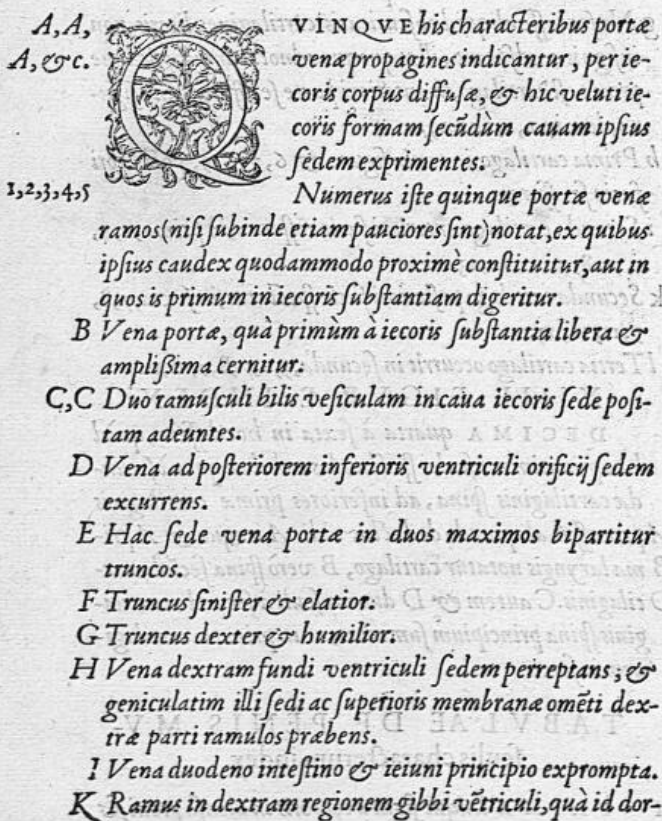 A, A, QVINQVE his characteribus portæ
A, &c. venæ propagines indicantur, per ie-
coris corpus diffusæ, & hic veluti ie-
coris formam secũdùm cauam ipsius
sedem exprimentes.
1,2,3,4,5 Numerus iste quinque portæ venæ
ramos (nisi subinde etiam pauciores sint) notat, ex quibus
ipsius caudex quodammodo proximè constituitur, aut in
quos is primum in iecoris substantiam digeritur.
B Vena portæ, quà primùm à iecoris substantia libera &
amplißima cernitur.
C,C Duo ramusculi bilis vesiculam in caua iecoris sede posi-
tam adeuntes.
D Vena ad posteriorem inferioris ventriculi orificij sedem
excurrens.
E Hac sede vena portæ in duos maximos bipartitur
truncos.
F Truncus sinister & elatior.
G Truncus dexter & humilior.
H Vena dextram fundi ventriculi sedem perreptans, &
geniculatim illi sedi ac superioris membranæ omẽti dex-
træ parti ramulos præbens.
I Vena duodeno intestino & ieiuni principio exprompta.
K Ramus in dextram regionem gibbi vẽtriculi, quà id dor-